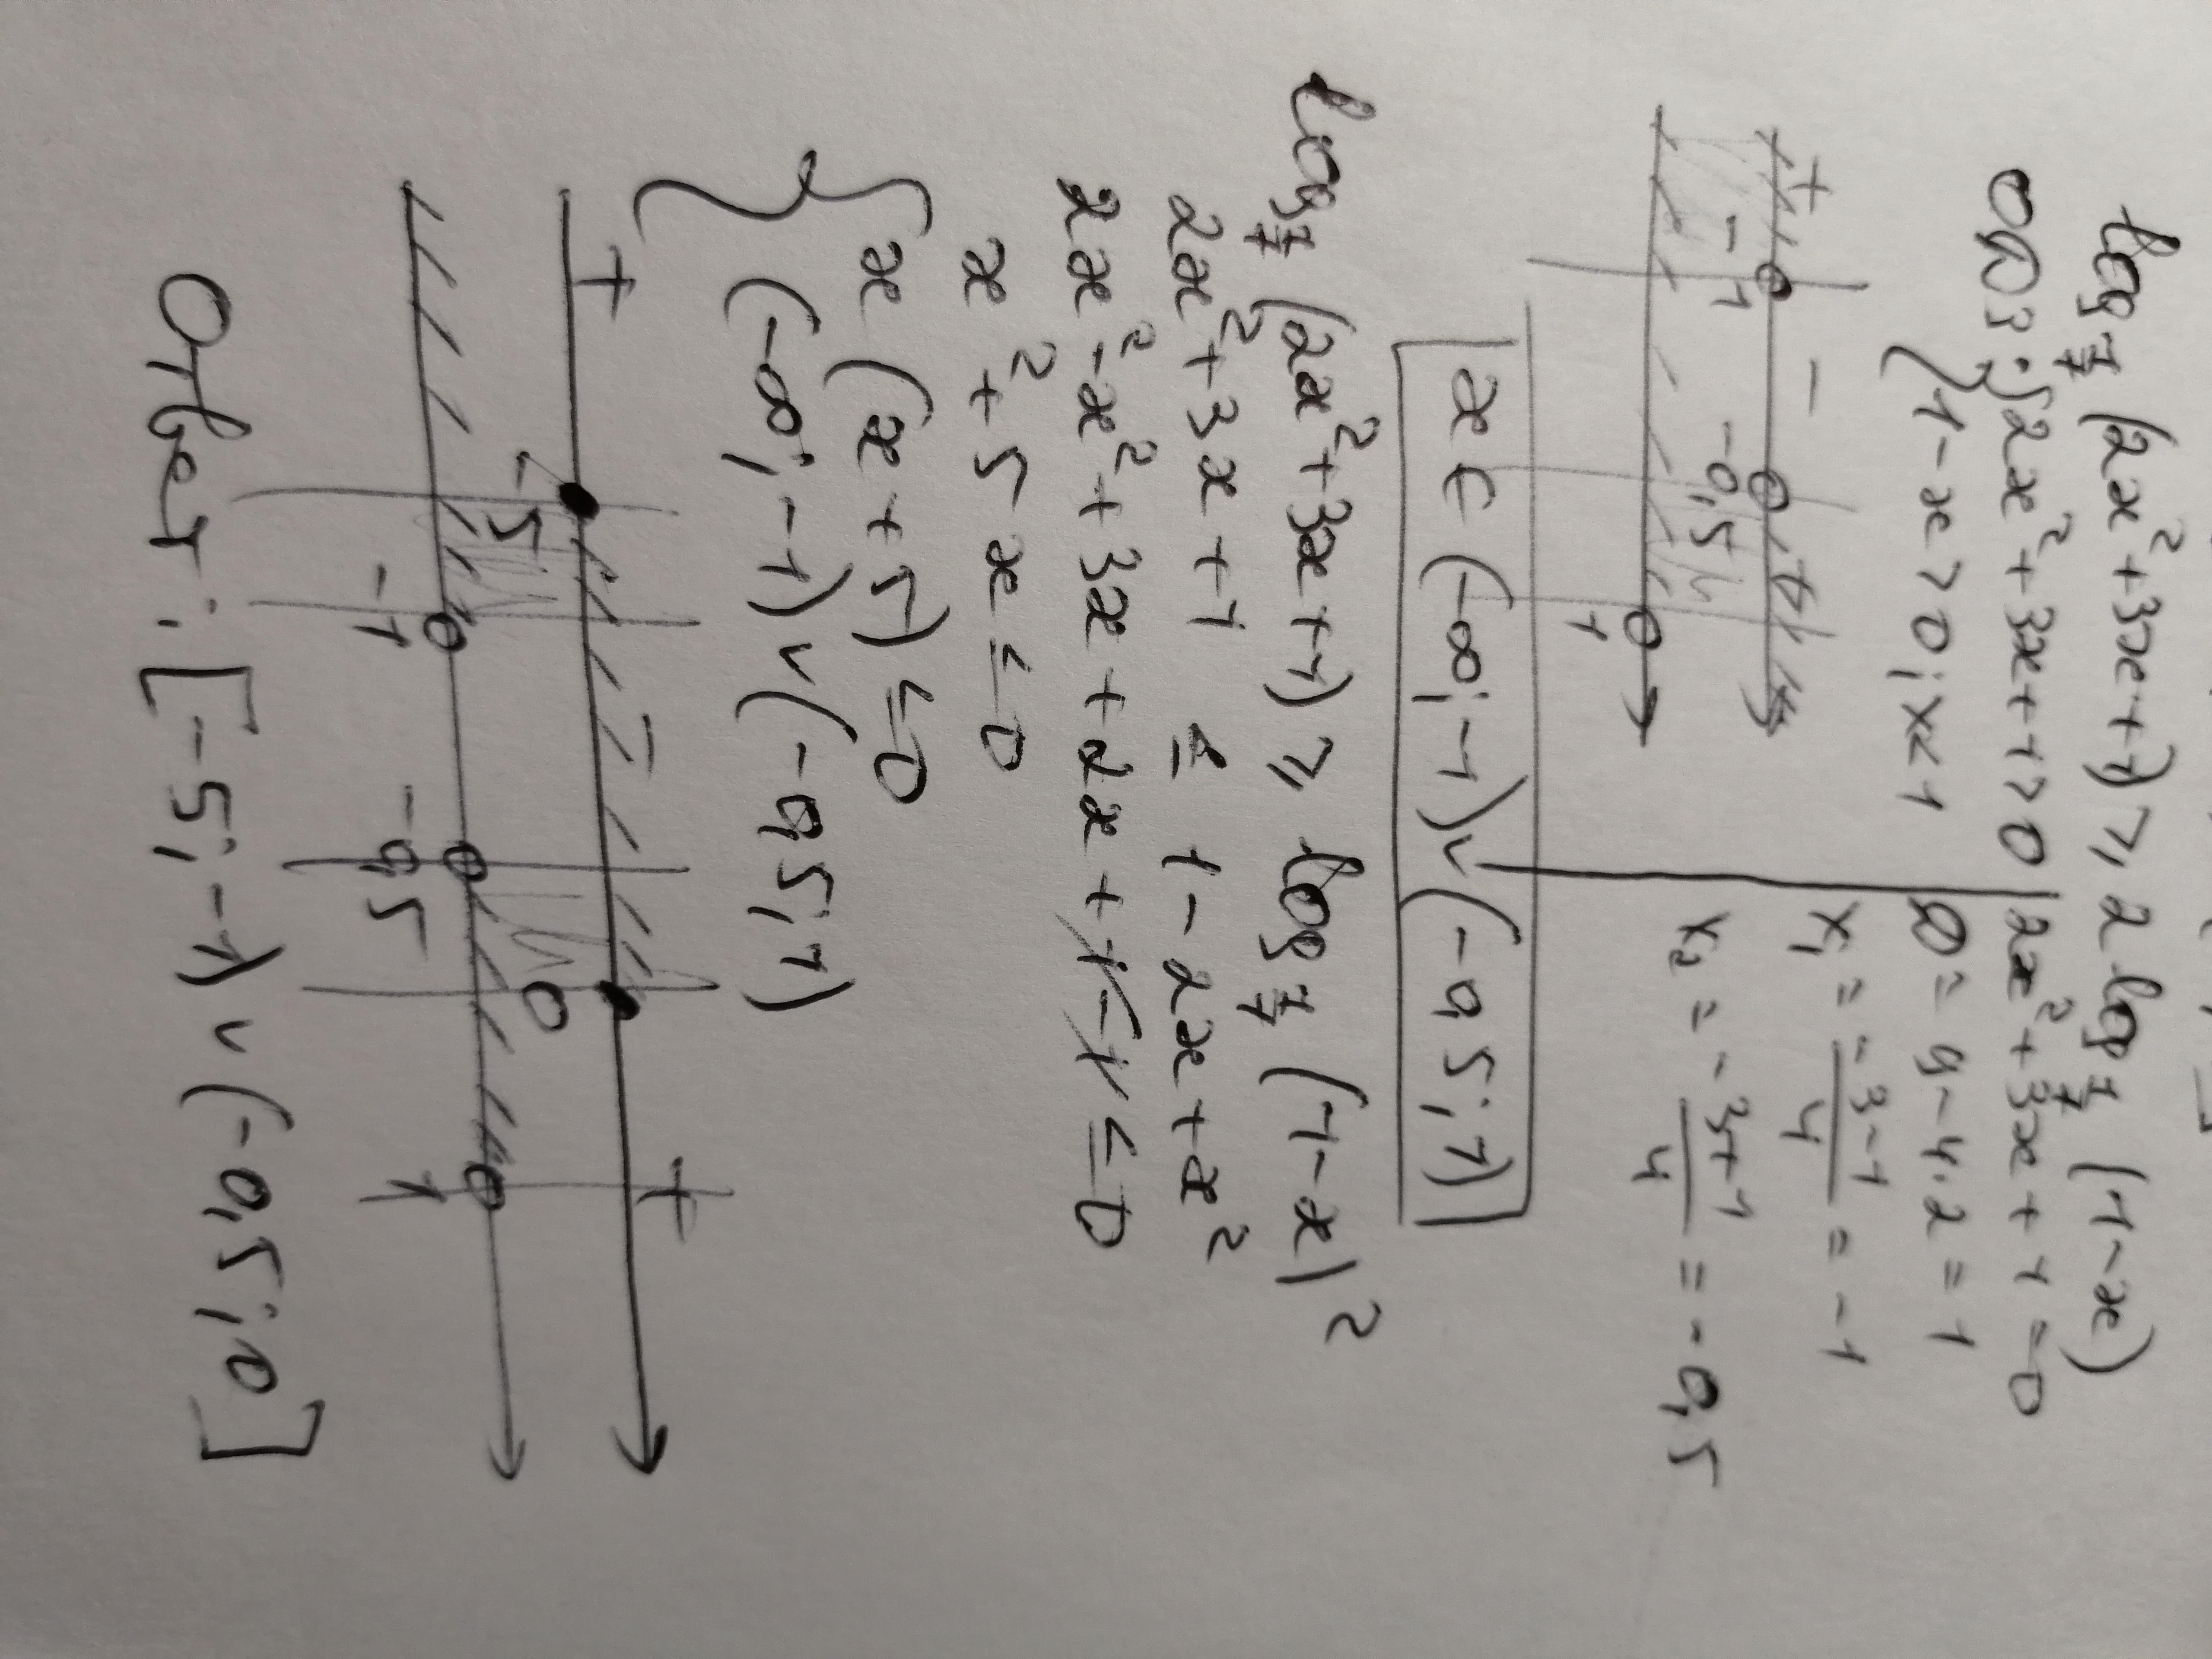 log_{1/7} (2x²+3x+1) ≥ 2 log_{1/7} (1-x)
ОДЗ: { 2x²+3x+1>0 | 2x²+3x+1=0
1-x>0; x<1
D = 9-4·2=1
x₁ = (-3-1)/4 = -1
x₂ = (-3+1)/4 = -0,5
+ - +
-1 -0,5
1
x ∈ (-∞;-1)∪(-0,5;1)
log_{1/7} (2x²+3x+1) ≥ log_{1/7} (1-x)²
2x²+3x+1 ≤ 1-2x+x²
2x²-x²+3x+2x+1-1≤0
x²+5x≤0
{ x(x+5)≤0
(-∞;-1)∪(-0,5;1)
+ - +
-5 0
-1 -0,5 1
Ответ: [-5;-1)∪(-0,5;0]